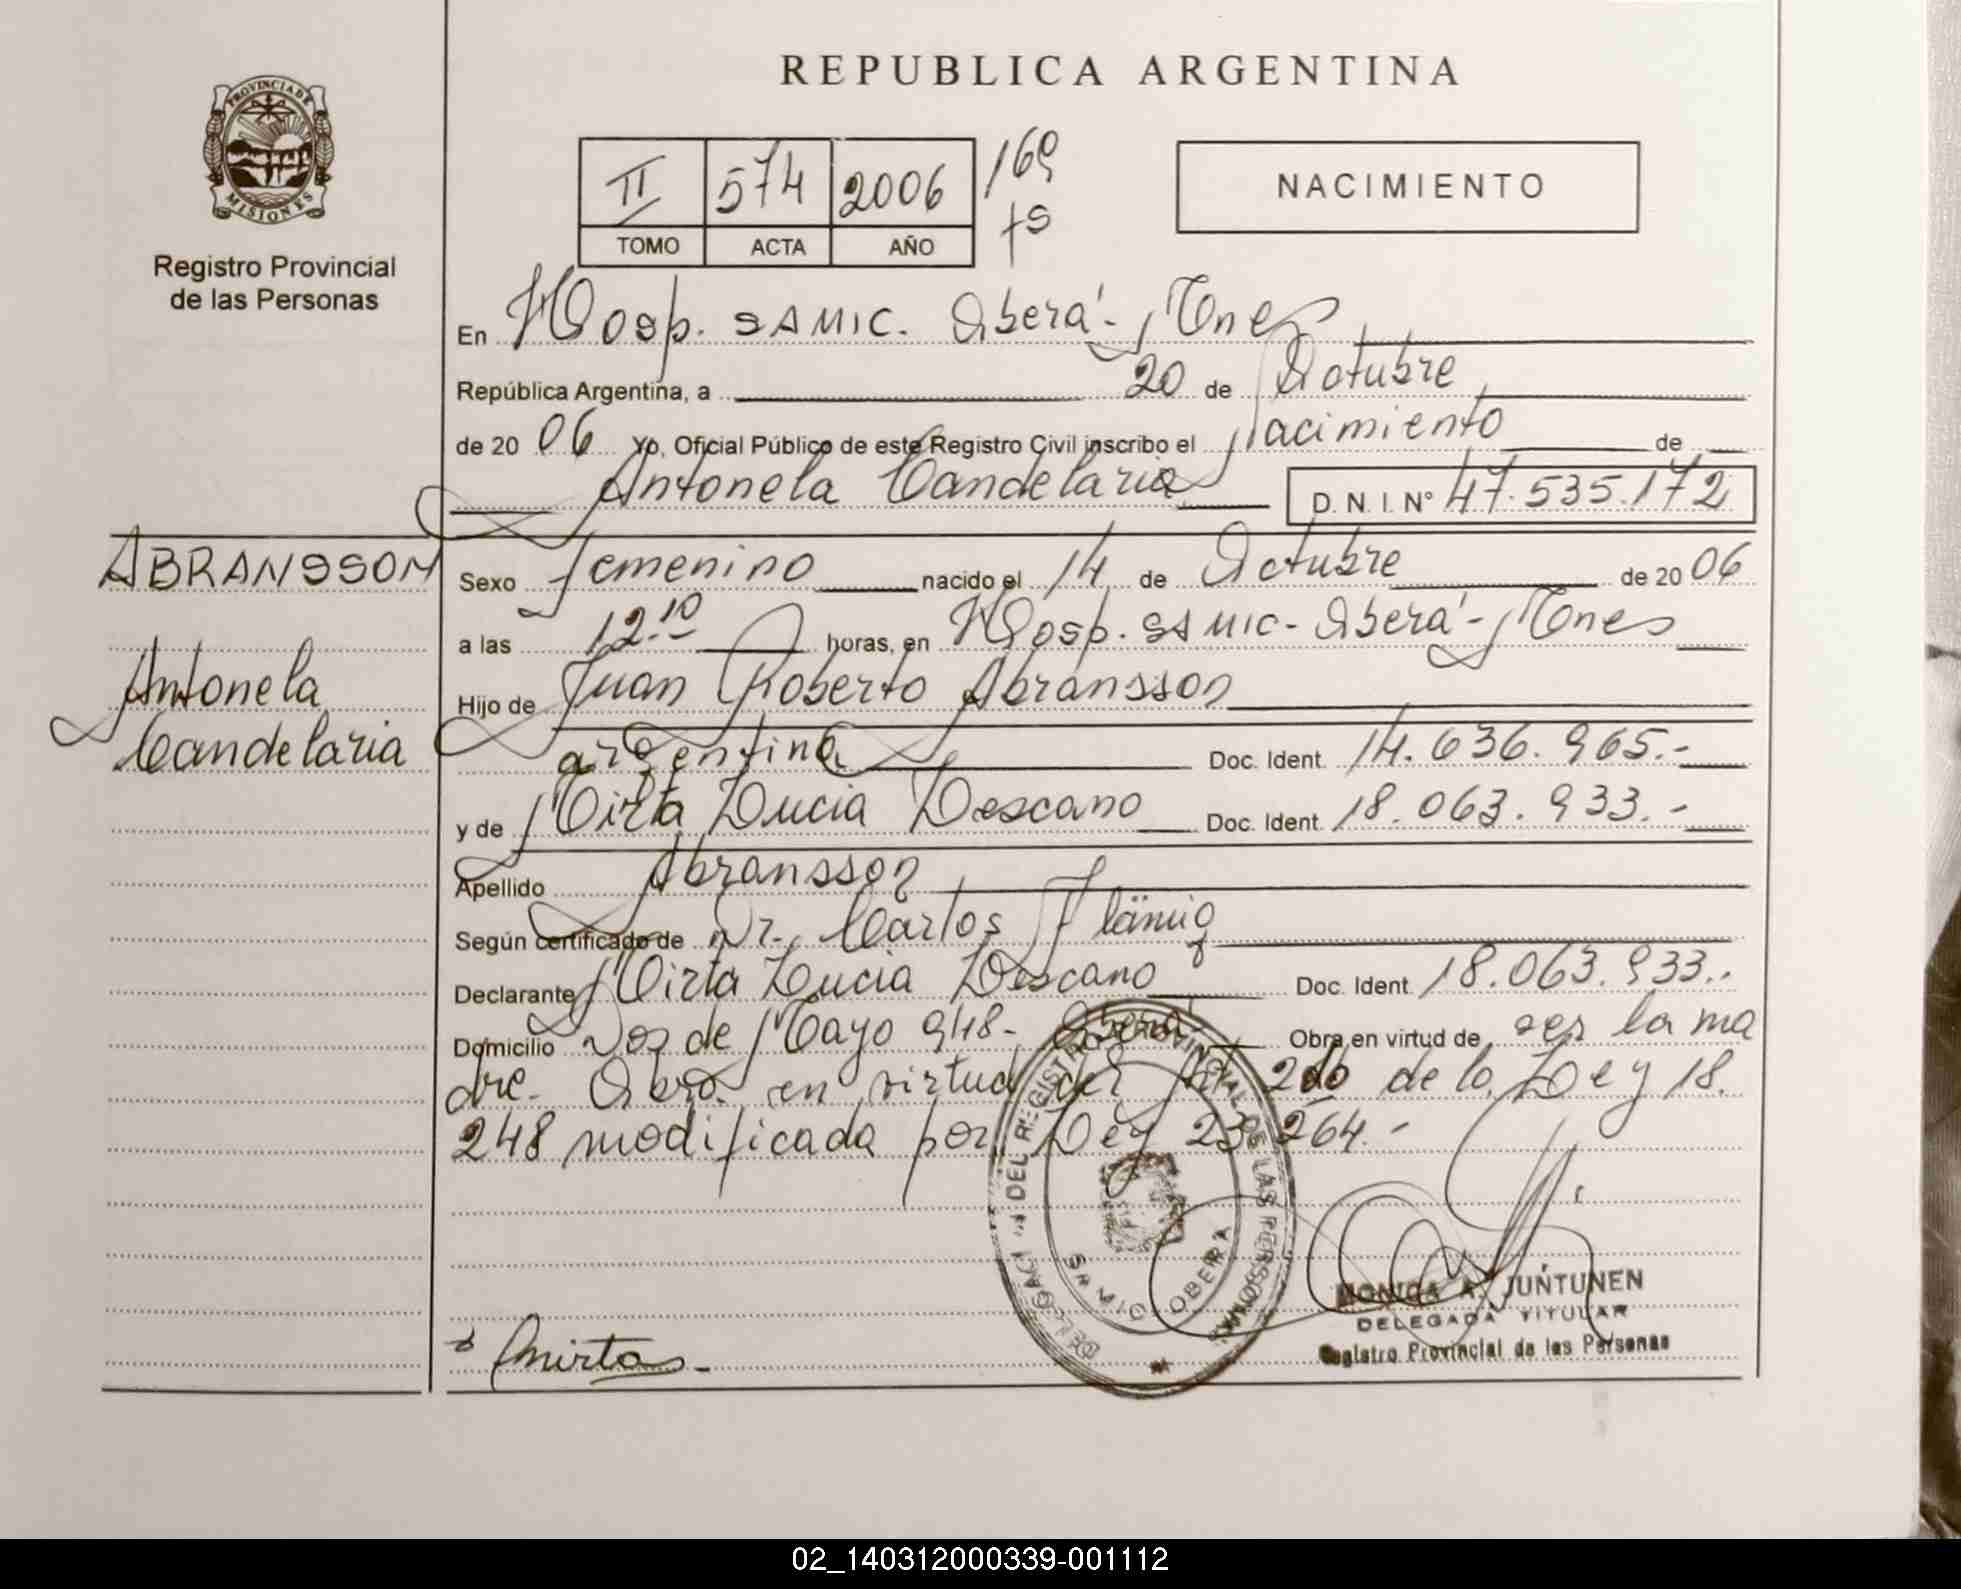 REPUBLICA ARGENTINA
PROVINCIA DE
MISIONES
Registro Provincial
de las Personas
II 574 2006 169
TOMO ACTA AÑO fs
NACIMIENTO
En Hosp. SAMIC. Oberá - Mnes
República Argentina, a 20 de Octubre
de 2006 Yo, Oficial Público de este Registro Civil inscribo el Nacimiento de
Antonela Candelaria D. N. I. N° 47.535.172
ABRANSSON
Antonela
Candelaria
Sexo femenino nacido el 14 de Octubre de 2006
a las 12.10 horas, en Hosp. SAMIC - Oberá - Mnes
Hijo de Juan Roberto Abransson
argentina Doc. Ident. 14.636.965.-
y de Mirta Lucia Lescano Doc. Ident. 18.063.933.-
Apellido Abransson
Según certificado de Dr. Carlos Flämig
Declarante Mirta Lucia Lescano Doc. Ident. 18.063.933.-
Domicilio Dos de Mayo 948 - Oberá - Obra en virtud de ser la ma
dre. Obra en virtud del Art 2do de la Ley 18.
248 modificada por Ley 23264.-
DEL REGISTRO PROVINCIAL DE LAS PERSONAS
SAMIC OBERA
MONICA A. JUNTUNEN
DELEGADA TITULAR
Registro Provincial de las Personas
Mirta
02_140312000339-001112